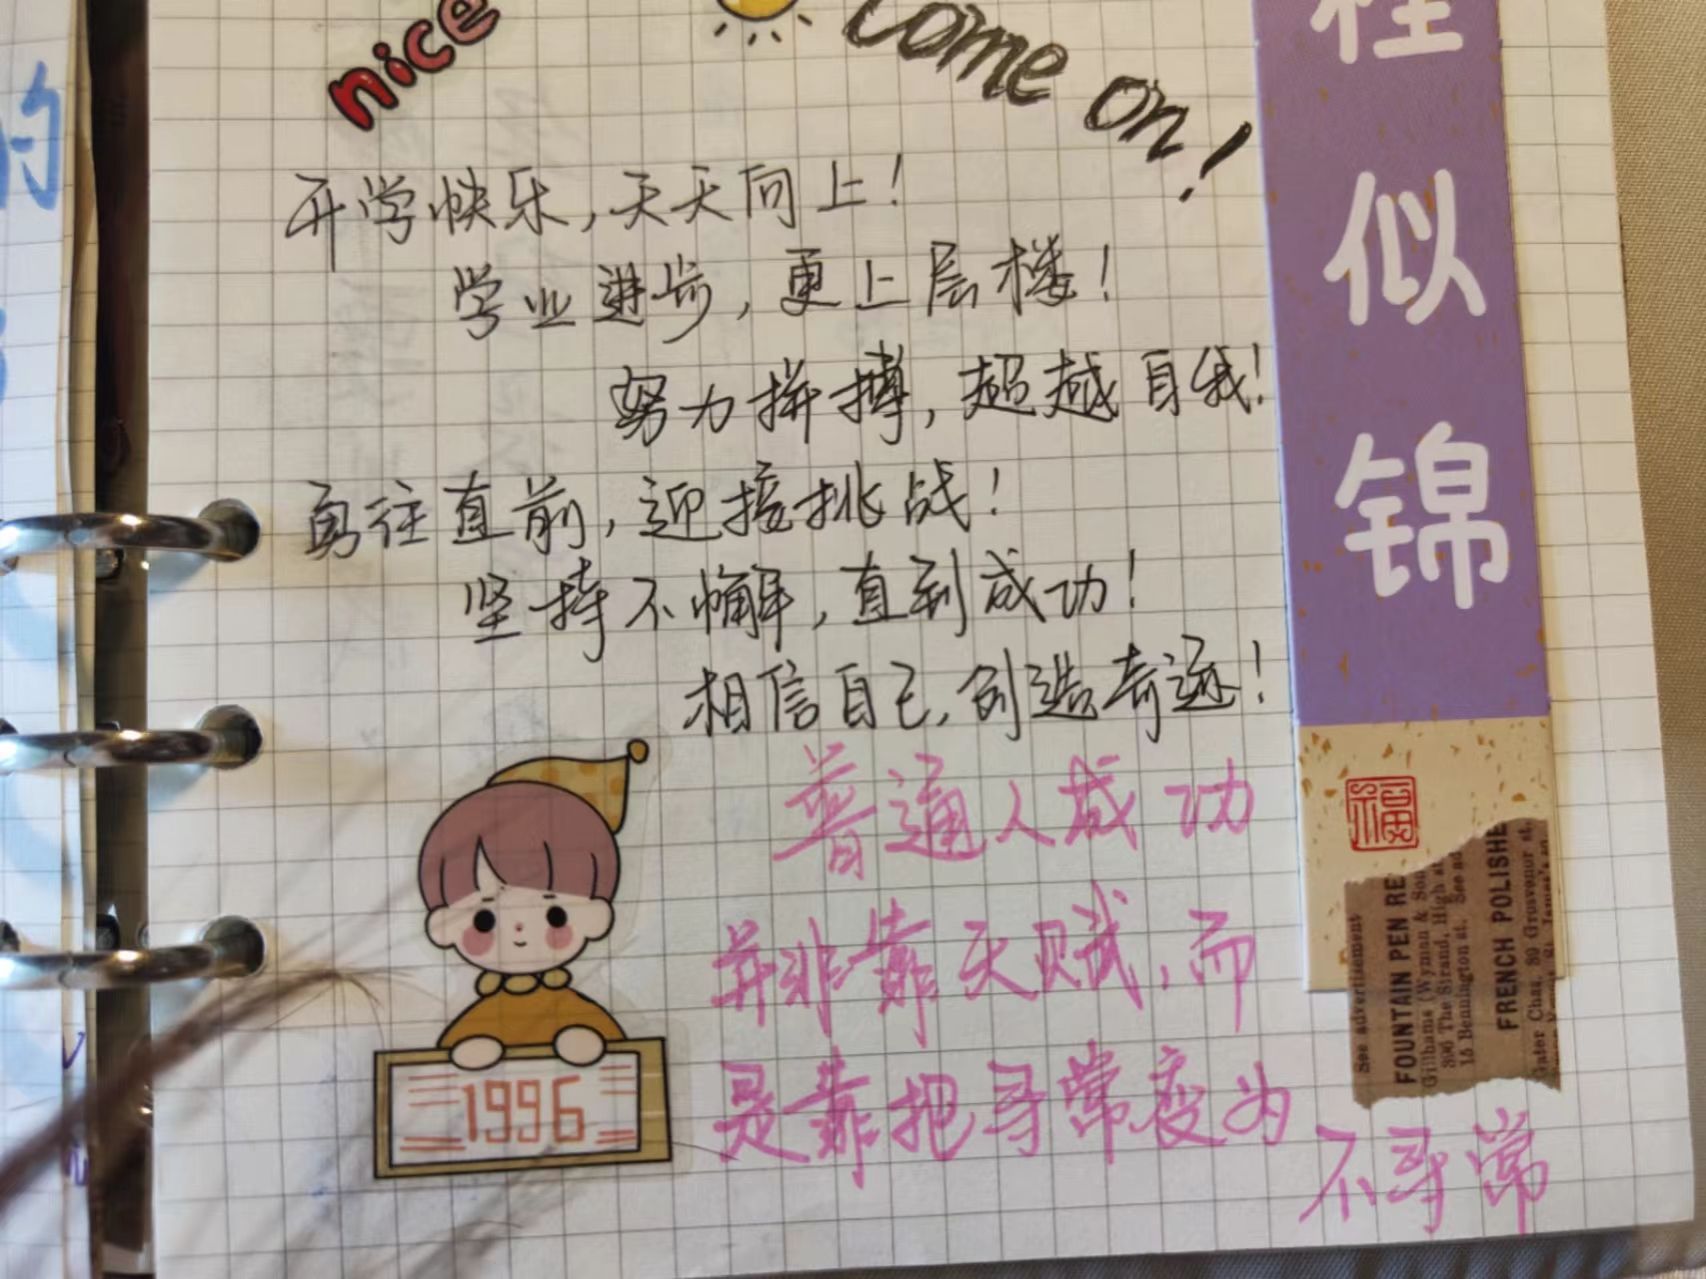 的
nice
come on!
开学快乐,天天向上!
学业进步,更上层楼!
努力拼搏,超越自我!
勇往直前,迎接挑战!
坚持不懈,直到成功!
相信自己,创造奇迹!
普通人成功
并非靠天赋,而
是靠把寻常变为
不寻常
1996
程似锦
福
See advertisement
FOUNTAIN PEN RE
Gillhams (Wyman & Son
396 The Strand, High st
15 Bennington st. See ad
FRENCH POLISHE
Gater Chas, 89 Grosvenor st.